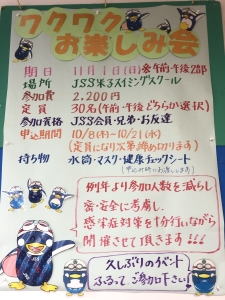 ワクワク
お楽しみ会
期日 11月1日(日)※午前・午後2部
場所 JSS米子スイミングスクール
参加費 2,200円
定員 30名(午前・午後どちらか選択)
参加資格 JSS会員・兄弟・お友達
申込期間 10/8(木)~10/21(水)
(定員になり次第締め切ります)
持ち物 水筒・マスク・健康チェックシート
(申込み時にお渡しします)
例年より参加人数を減らし
密・安全に考慮し、
感染症対策を十分行いながら
開催させて頂きます!!!
久しぶりのイベント
ふるってご参加下さい!